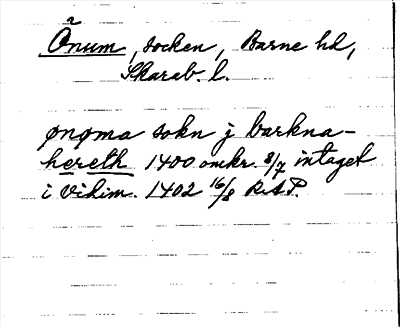 Önum, socken, Barne hd,
Skarab. l.
ønøma sokn j barkna-
hereth 1400 omkr. 8/7 intaget
i vidim. 1402 16/8 RAP.